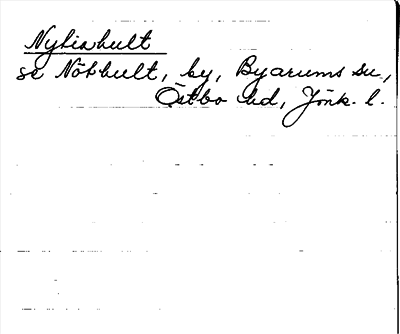 Nykiahult
se Nökhult, by, Byarums sn,
Östbo hd, Jönk. l.